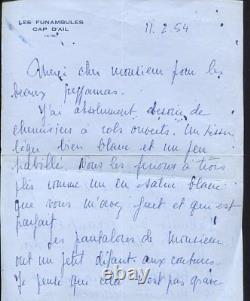 LES FUNAMBULES
CAP D'AIL
11.2.54
Merci cher monsieur pour les
beaux pyjamas.
J'ai absolument besoin de
chemisiers à cols ouverts. Un tissu
léger bien blanc et un peu
Nous les ferions à trois
plis comme un en satin blanc
que vous m'avez fait et qui est
parfait.
Les pantalons de Monsieur
ont un petit défaut aux coutures
Je pense que cela n'est pas grave